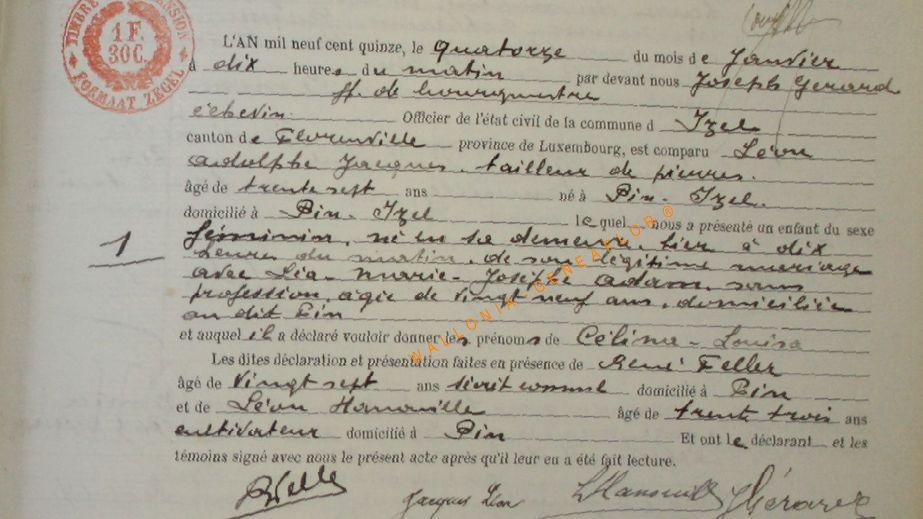 TIMBRE EXTENSION
1 F. 30C.
FORMAAT ZEGEL
L'AN mil neuf cent quinze, le quatorze du mois de Janvier
à dix heures du matin par devant nous Joseph Gerard
ff. de bourgmestre
échevin Officier de l'état civil de la commune d Izel
canton de Florenville province de Luxembourg, est comparu Léon
Adolphe Jacques, tailleur de pierres.
âgé de trente sept ans né à Pin-Izel
domicilié à Pin-Izel lequel nous a présenté un enfant du sexe
1
féminin, né en sa demeure, hier à dix
heures du matin, de son légitime mariage
avec Léa-Marie-Josèphe Adam, sans
profession, âgée de vingt neuf ans, domiciliée
au dit Pin
et auquel il a déclaré vouloir donner les prénoms de Célina-Louisa
Les dites déclaration et présentation faites en présence de René Feller
âgé de vingt sept ans domicilié à Pin
et de Léon âgé de trente trois ans
cultivateur domicilié à Pin Et ont le déclarant et les
témoins signé avec nous le présent acte après qu'il leur eu a été fait lecture.
Jacques Léon JGérard
WALLONIA-GENEAFLOB®